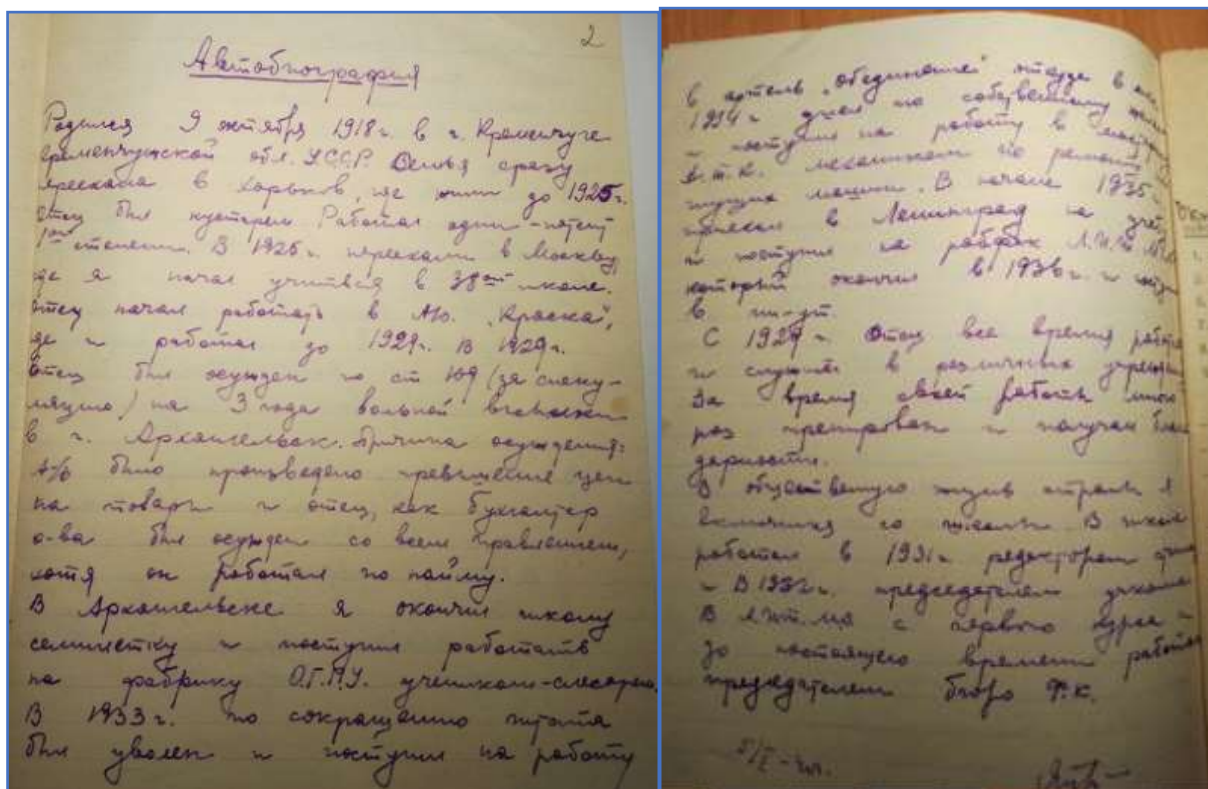 2
Автобиография
Родился 9 октября 1918 г. в г. Кременчуге
Кременчугской обл. УССР. Семья сразу
переехала в Харьков, где жили до 1925 г.
Отец был кустарем. Работал один - патент
1ой степени. В 1925 г. переехали в Москву,
где я начал учиться в 38ой школе.
Отец начал работать в А/о. "Краска",
где и работал до 1929 г. В 1929 г.
отец был осужден по ст 109 (за спеку-
ляцию) на 3 года вольной высылки
в г. Архангельск. Причина осуждения:
А/о было произведено превышение цен
на товары и отец, как бухгалтер
о-ва был осужден со всем правлением,
хотя он работал по найму.
В Архангельске я окончил школу
семилетку и поступил работать
на фабрику О.Г.П.У. учеником-слесарем.
В 1933 г. по сокращению штата
был уволен и поступил на работу
в артель "Объединение" откуда в
1934 г. ушел по собственному
и поступил на работу в
механиком по ремонту
пишущих машин. В начале 1935 г.
приехал в Ленинград на учебу
и поступил на рабфак
который окончил в 1936 г. и
в ин-ут.
С 1929 г. отец все время работал
и служит в различных
За время своей работы много
раз премирован и получал благо-
дарности.
В общественную жизнь страны я
включился со школы. В школе
работал в 1931 г. редактором
и В 1932 г. председателем учкома
В с первого курса и
до настоящего времени работаю
председателем бюро Ф.К.